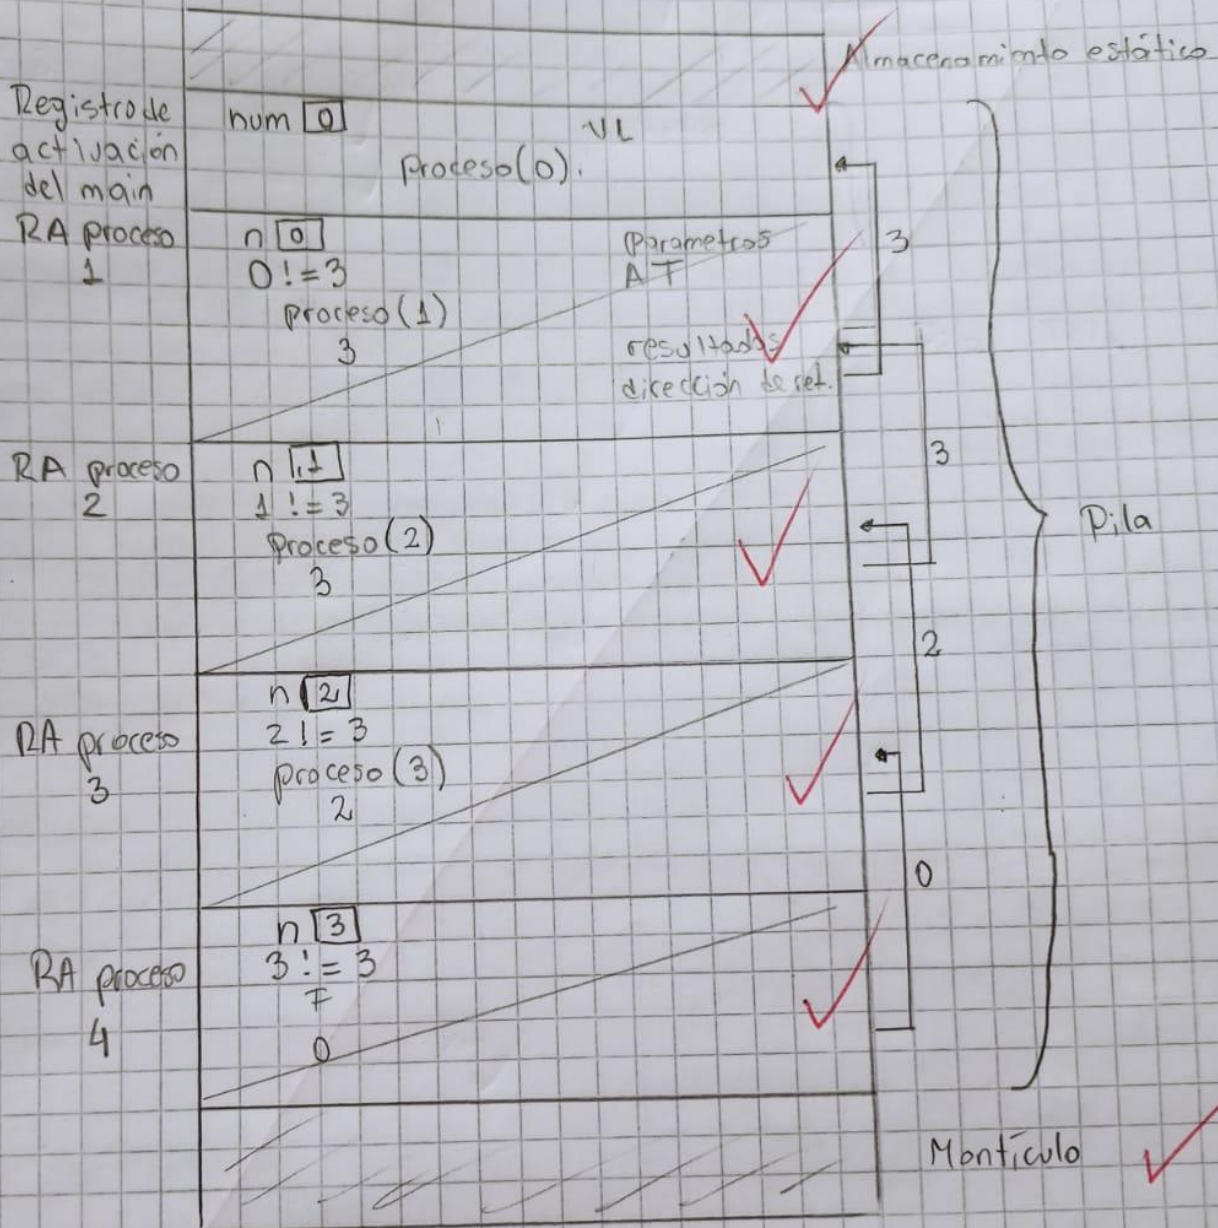 Almacenamiento estático
Registro de
activación
del main
num 0
VL
proceso(0).
RA proceso
1
n 0
0 != 3
proceso(1)
3
Parametros
AT
resultados
dirección de ret.
3
RA proceso
2
n 1
1 != 3
proceso(2)
3
3
Pila
RA proceso
3
n 2
2 != 3
proceso(3)
2
2
RA proceso
4
n 3
3 != 3
F
0
0
Montículo